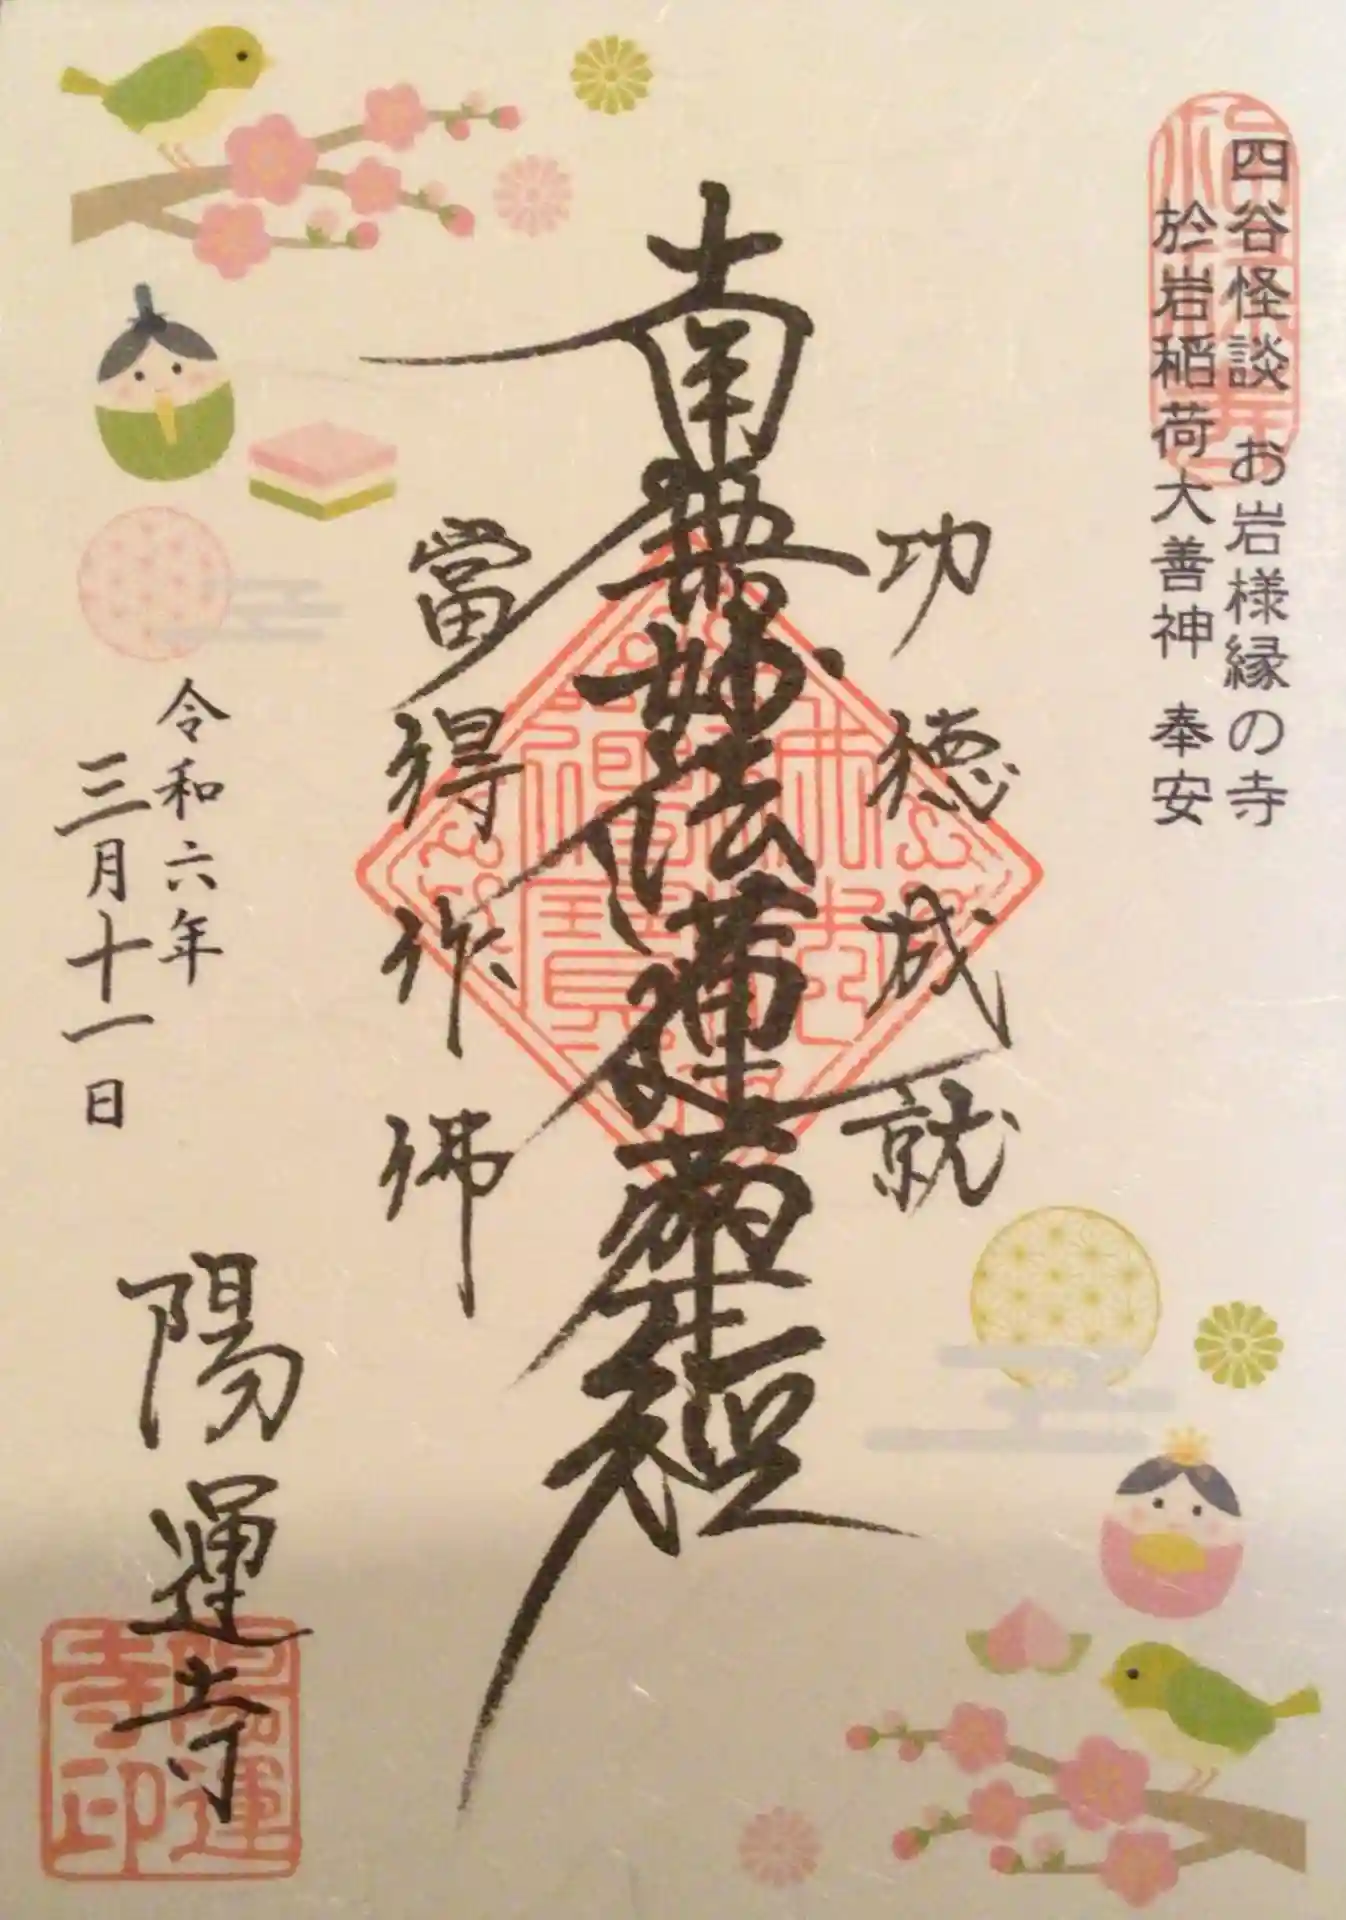 四谷怪談 お岩様縁の寺
於岩稲荷大善神 奉安
功徳成就
南無妙法蓮華経
當得作佛
令和六年
三月十一日
陽運寺
陽運
寺印